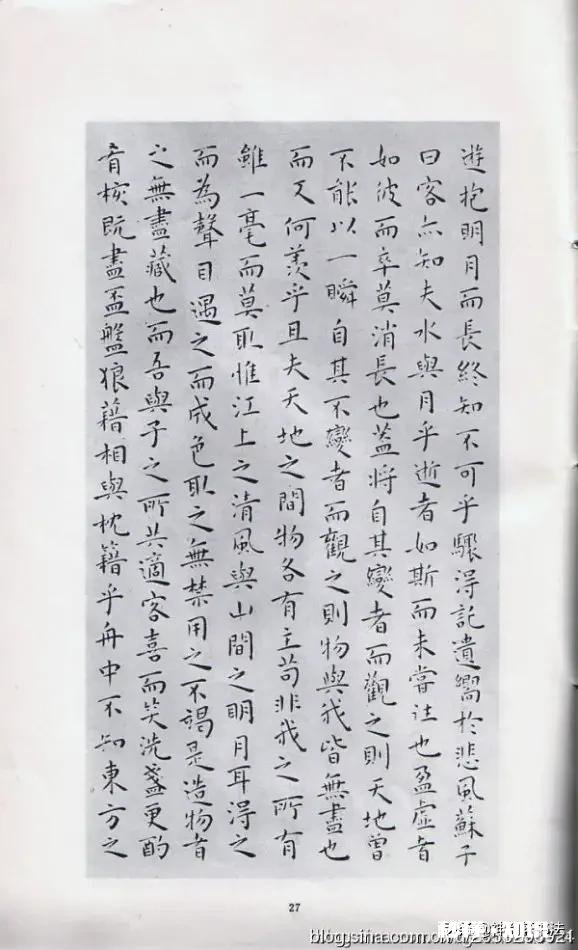 遊抱明月而長終知不可乎驟得託遺嚮於悲風蘇子
曰客亦知夫水與月乎逝者如斯而未嘗往也盈虛者
如彼而卒莫消長也蓋將自其變者而觀之則天地曾
不能以一瞬自其不變者而觀之則物與我皆無盡也
而又何羨乎且夫天地之間物各有主苟非我之所有
雖一毫而莫取惟江上之清風與山間之明月耳得之
而為聲目遇之而成色取之無禁用之不竭是造物者
之無盡藏也而吾與子之所共適客喜而笑洗盞更酌
肴核既盡盃盤狼藉相與枕籍乎舟中不知東方之
27
blog.sina.com.cn